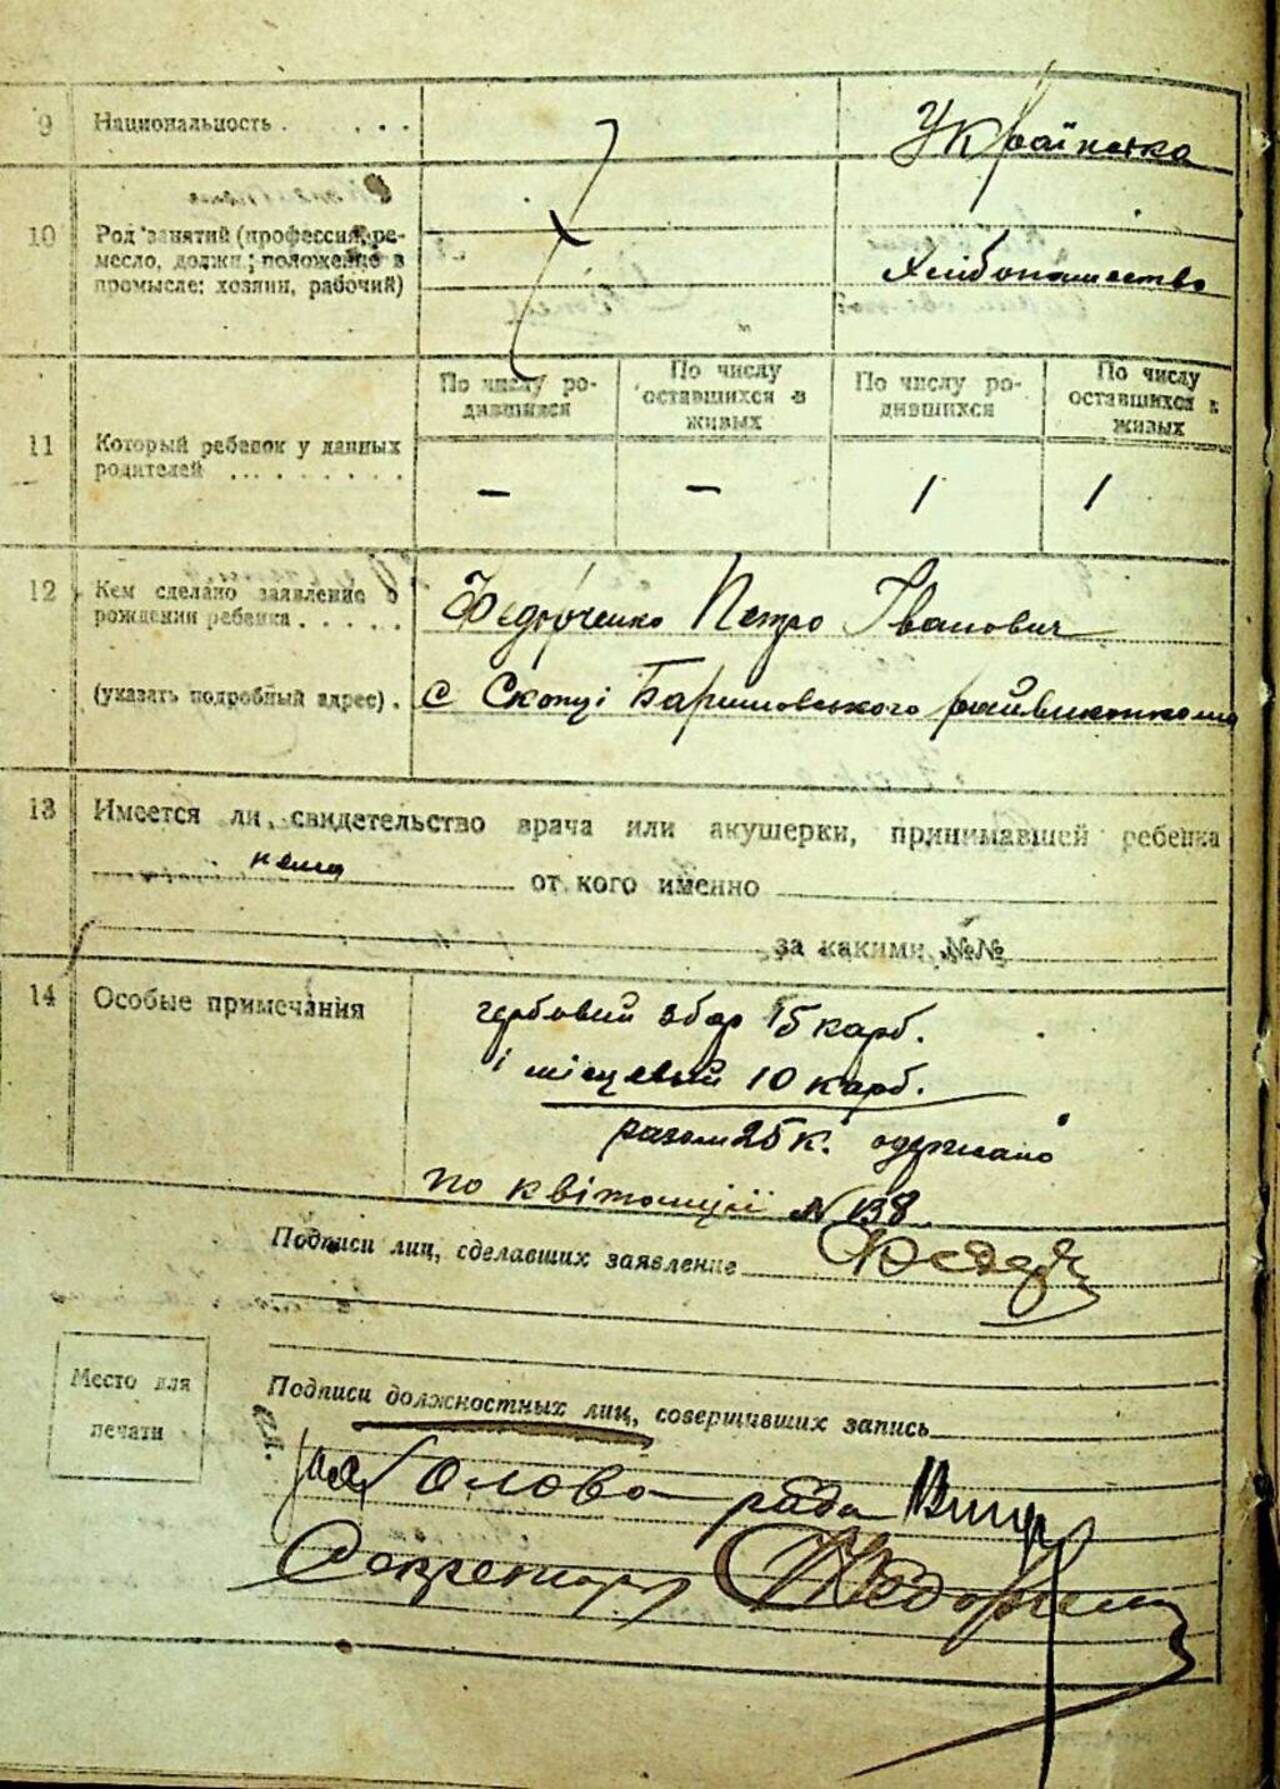 9 Национальность . . . . Українська
10 Род занятий (профессия, ре-
месло, должн.; положение в
промысле: хозяин, рабочий)
Хлібопашество
По числу ро-
дившихся
По числу
оставшихся в
живых
По числу ро-
дившихся
По числу
оставшихся в
живых
11 Который ребенок у данных
родителей . . . . . . . .
— — 1 1
12 Кем сделано заявление о
рождении ребенка . . . . .
Федорченко Петро Іванович
(указать подробный адрес) . с Скопці Баришовського райвиконкома
13 Имеется ли свидетельство врача или акушерки, принимавшей ребенка
нема от кого именно
за какими №№
14 Особые примечания
гербовий збор 15 карб.
і місцевий 10 карб.
разом 25 к. одержано
по квітанції N 138
Подписи лиц, сделавших заявление
Место для
печати
Подписи должностных лиц, совершивших запись
Голова ради
Секретарь